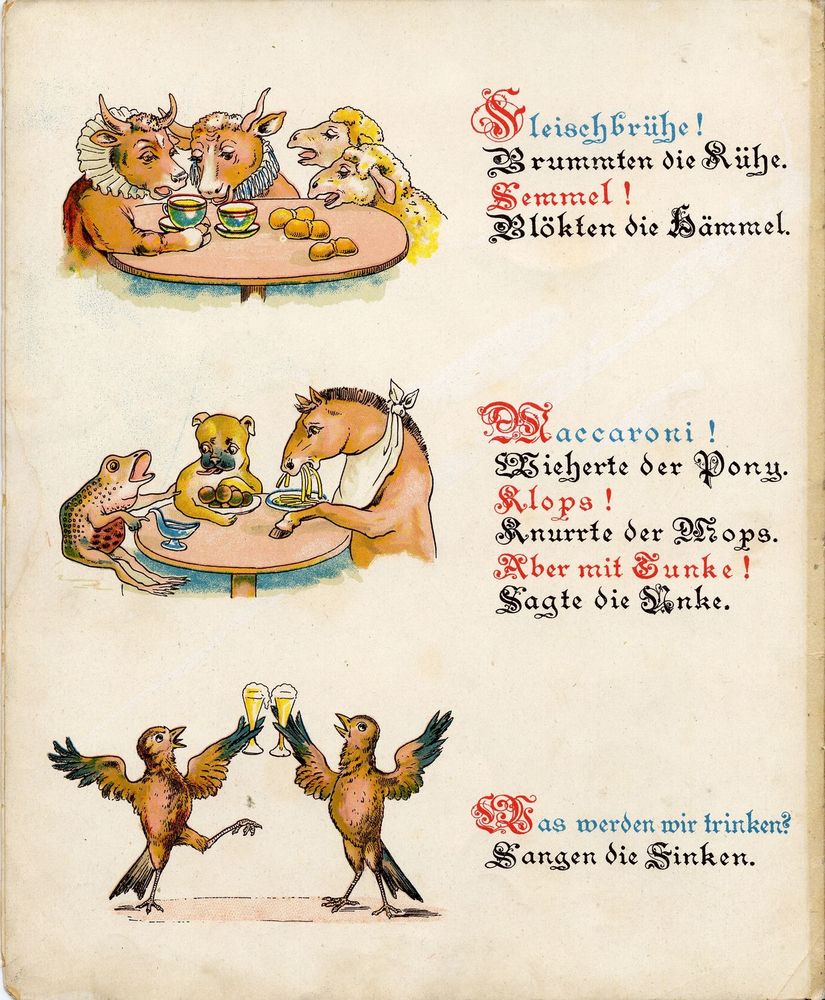 Fleischbrühe!
Brummten die Kühe.
Semmel!
Blökten die Hämmel.
Maccaroni!
Wieherte der Pony.
Klops!
Knurrte der Mops.
Aber mit Tunke!
Sagte die Unke.
Was werden wir trinken?
Sangen die Finken.